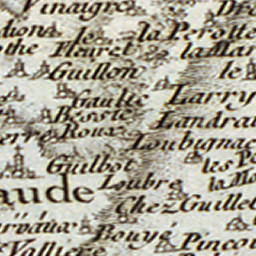 Vinaigre
le la Perotte
Fleuret la Mar
Guillon le
Gaulie Larry
Bessie Landrai
Roux Loubignac
Guilbot les P
aude Loubre la Mo
Chez Guillet
Bouyé Pinçou
Valliere